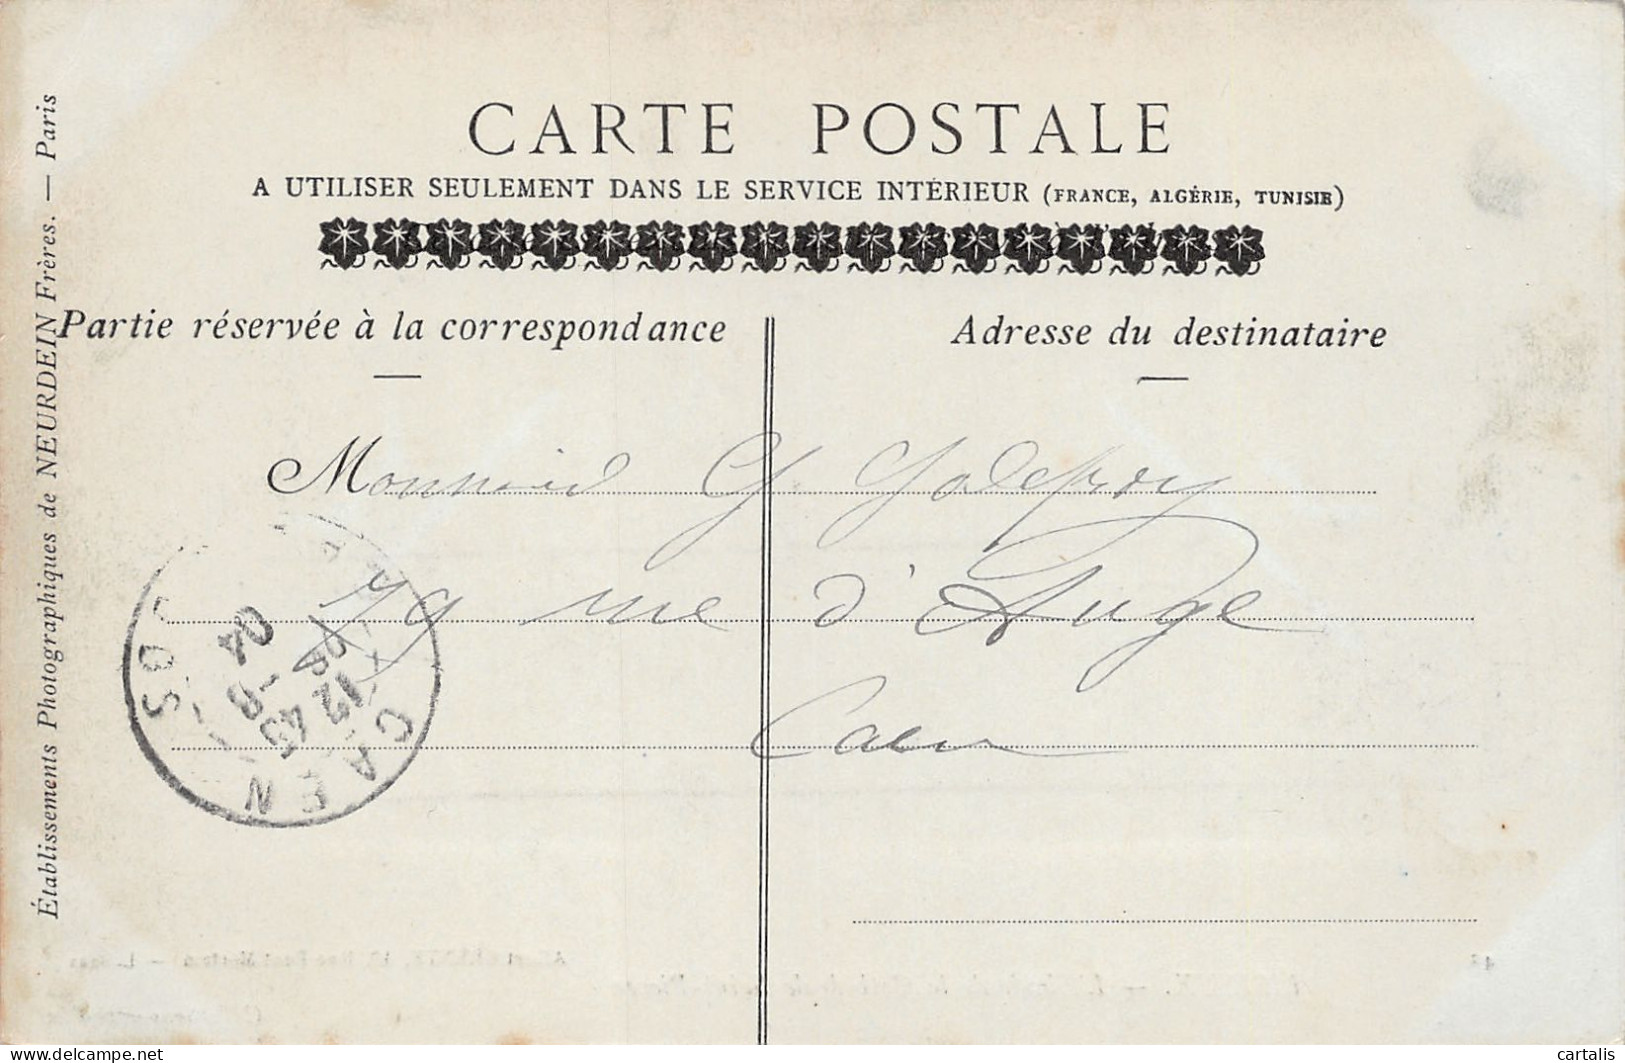 CARTE POSTALE
A UTILISER SEULEMENT DANS LE SERVICE INTÉRIEUR (FRANCE, ALGÉRIE, TUNISIE)
Partie réservée à la correspondance
Adresse du destinataire
Établissements Photographiques de NEURDEIN Frères. — Paris
G. Godefroy
79 rue d'Auge
Caen
CAEN
12 45
8
04
CALVADOS
delcampe.net
cartalis